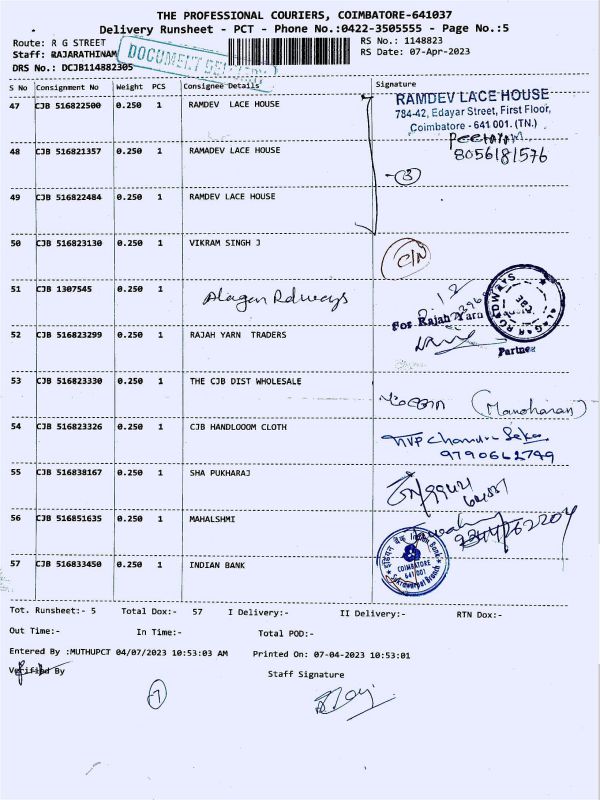 THE PROFESSIONAL COURIERS, COIMBATORE-641037
Delivery Runsheet - PCT - Phone No.:0422-3505555 - Page No.:5
Route: R G STREET
RS No.: 1148823
Staff: RAJARATHINAM
RS Date: 07-Apr-2023
DRS No.: DCJB114882305
DOCUMENT
S No Consignment No Weight PCS Consignee Details Signature
47 CJB 516822500 0.250 1 RAMDEV LACE HOUSE
RAMDEV LACE HOUSE
784-42, Edayar Street, First Floor,
Coimbatore - 641 001. (TN.)
8056181576
48 CJB 516821357 0.250 1 RAMADEV LACE HOUSE
3
49 CJB 516822484 0.250 1 RAMDEV LACE HOUSE
50 CJB 516823130 0.250 1 VIKRAM SINGH J
C/N
51 CJB 1307545 0.250 1 Alagar Roadways
ALAGAR ROADWAYS
CBE
For Rajah Yarn
52 CJB 516823299 0.250 1 RAJAH YARN TRADERS
Partner
53 CJB 516823330 0.250 1 THE CJB DIST WHOLESALE
(Manoharan)
54 CJB 516823326 0.250 1 CJB HANDLOOOM CLOTH
9790662799
55 CJB 516838167 0.250 1 SHA PUKHARAJ
56 CJB 516851635 0.250 1 MAHALSHMI
57 CJB 516833450 0.250 1 INDIAN BANK
इंडियन बैंक Indian Bank
COIMBATORE
641 001
Tot. Runsheet:- 5 Total Dox:- 57 I Delivery:- II Delivery:- RTN Dox:-
Out Time:- In Time:- Total POD:-
Entered By :MUTHUPCT 04/07/2023 10:53:03 AM Printed On: 07-04-2023 10:53:01
Verified By Staff Signature
7